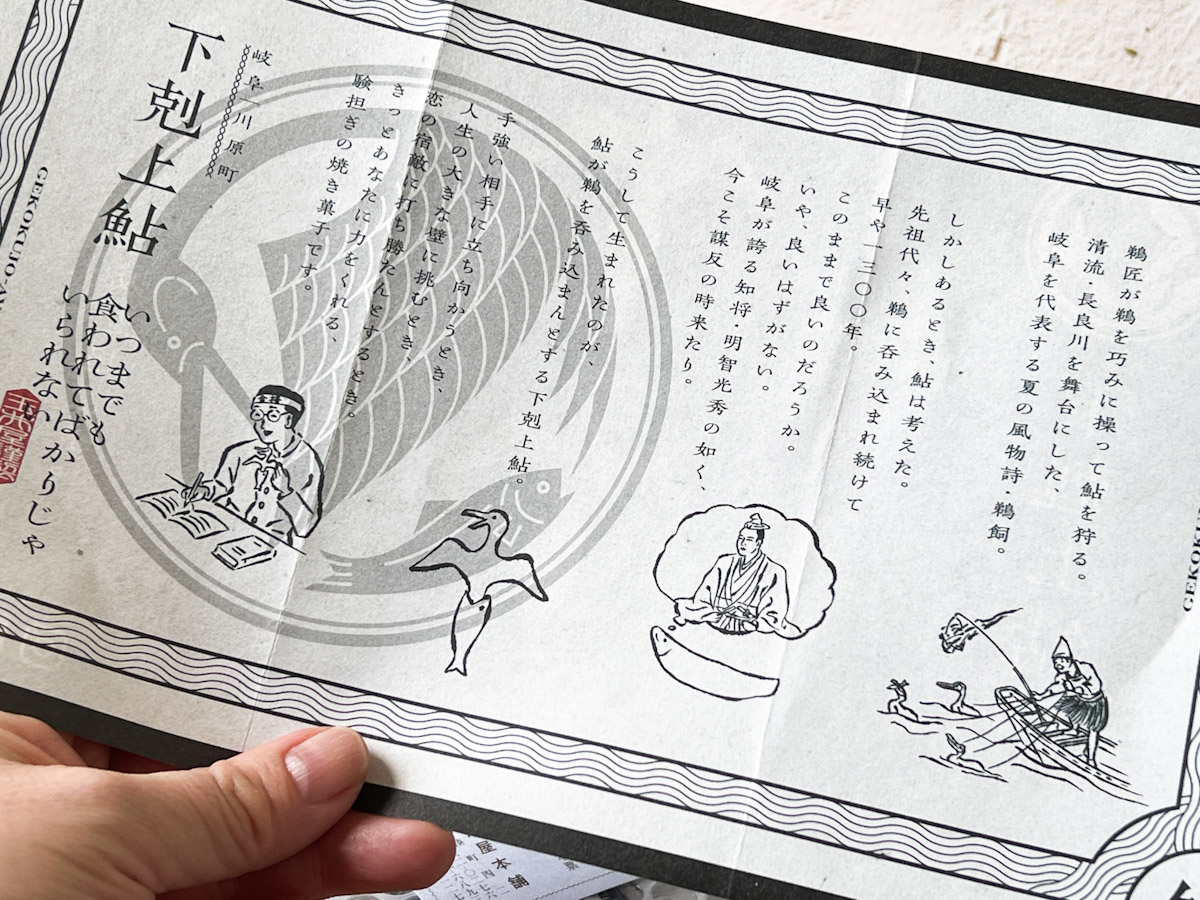 鵜匠が鵜を巧みに操って鮎を狩る。
清流・長良川を舞台にした、
岐阜を代表する夏の風物詩・鵜飼。
しかしあるとき、鮎は考えた。
先祖代々、鵜に呑み込まれ続けて
早や一三〇〇年。
このままで良いのだろうか。
いや、良いはずがない。
岐阜が誇る知将・明智光秀の如く、
今こそ謀反の時来たり。
こうして生まれたのが、
鮎が鵜を呑み込まんとする下剋上鮎。
手強い相手に立ち向かうとき、
人生の大きな壁に挑むとき、
恋の宿敵に打ち勝たんとするとき。
きっとあなたに力をくれる、
験担ぎの焼き菓子です。
岐阜 川原町
下剋上鮎
いつまでも
食われてばかりじゃ
いられない
屋本舗